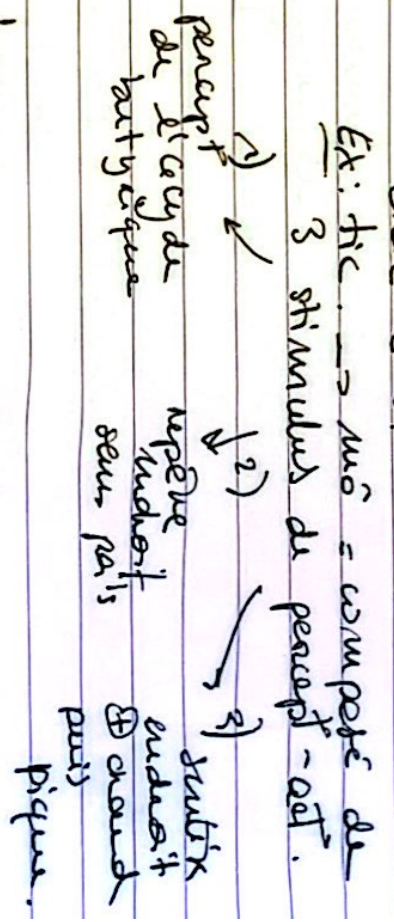 Ex: tic. —> mô = composé de
3 stimulus de percept°-act°.
1) ↙
percept°
de l'acyde
butyrique
↓ 2)
repère
endroit
sans poils
↘ 3)
endroit
⊕ chaud
puis
pique.